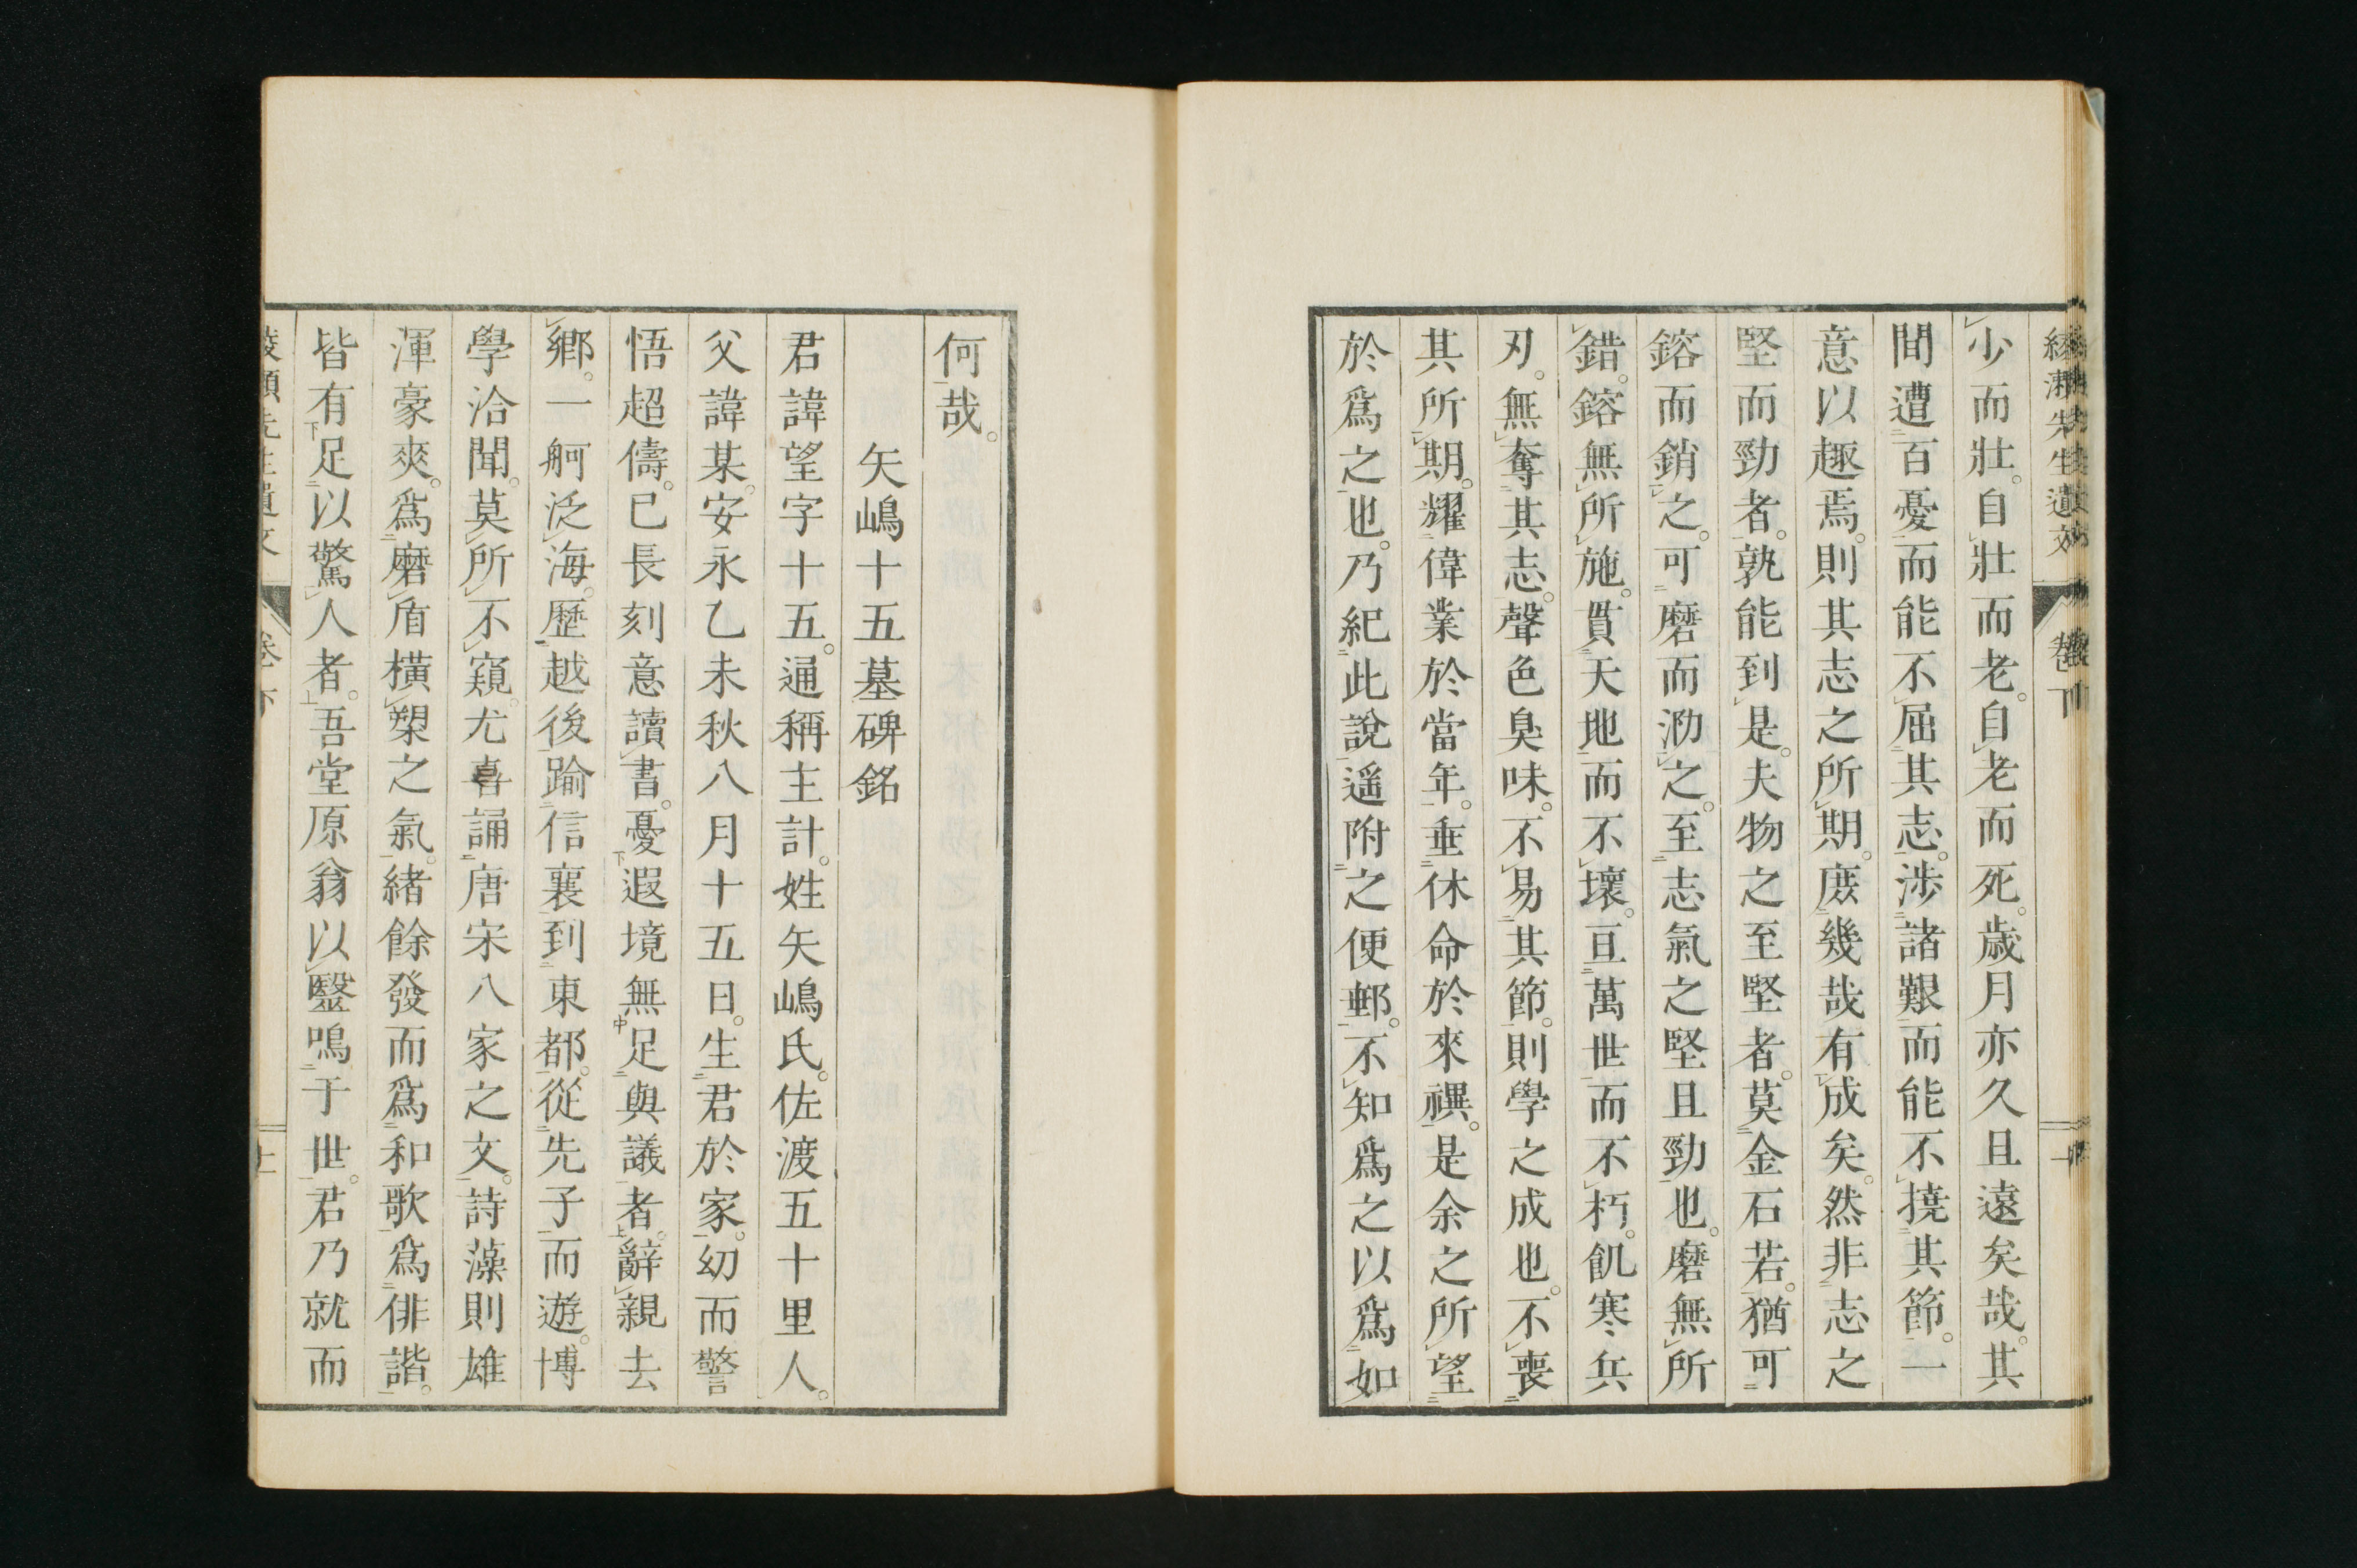 少而壯。自壯而老。自老而死。歳月亦久且遠矣哉。其
間遭百憂而能不屈其志。渉諸艱而能不撓其節。一
意以趣焉。則其志之所期。庶幾哉有成矣。然非志之
堅而勁者。孰能到是。夫物之至堅者。莫金石若。猶可
鎔而銷之。可磨而泐之。至志氣之堅且勁也。磨無所
錯。鎔無所施。貫天地而不壞。亘萬世而不朽。飢寒兵
刃。無奪其志。聲色臭味。不易其節。則學之成也。不喪
其所期。耀偉業於當年。垂休命於來禩。是余之所望
於爲之也。乃紀此說遥附之便郵。不知爲之以爲如
何哉。
矢嶋十五墓碑銘
君諱望字十五。通稱主計。姓矢嶋氏。佐渡五十里人。
父諱某。安永乙未秋八月十五日。生君於家。幼而警
悟超儔。已長刻意讀書。憂遐境無足與議者。辭親去
鄉。一舸泛海。歷越後踰信襄到東都。從先子而遊。博
學洽聞。莫所不窺。尤喜誦唐宋八家之文。詩藻則雄
渾豪爽。爲磨盾橫槊之氣。緒餘發而爲和歌爲俳諧。
皆有足以驚人者。吾堂原翁以毉鳴于世。君乃就而
先生遺文 卷下